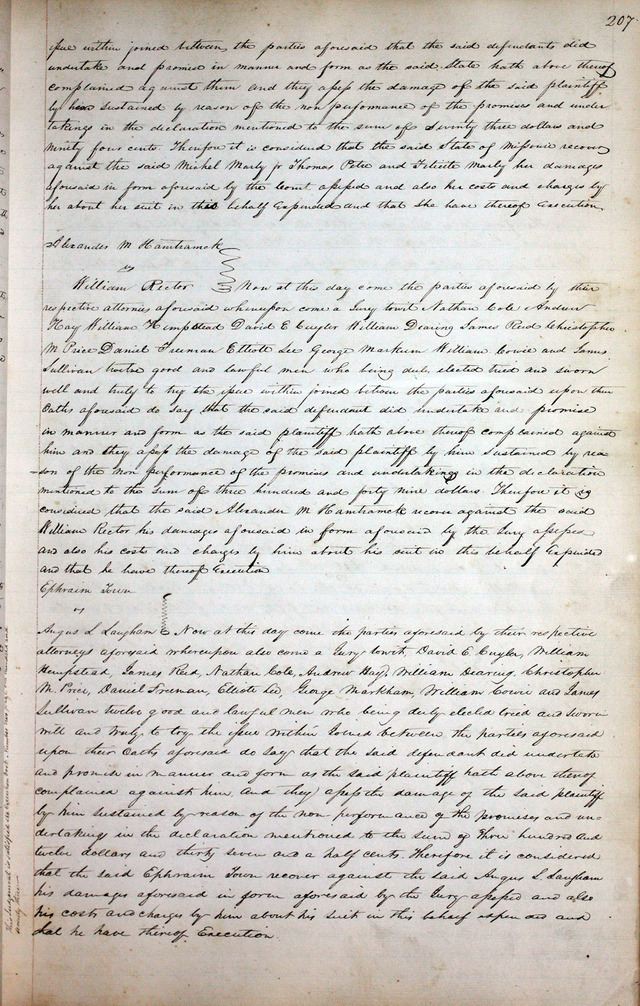 207
issue within joined between the parties aforesaid that the said defendants did
undertake and promise in manner and form as the said State hath above thereof
complained against them and they assess the damage of the said plaintiff
by her sustained by reason of the non performance of the promises and under
takings in the declaration mentioned to the sum of Seventy three dollars and
ninety four cents Therefore it is considered that the said State of Missouri recover
against the said Michel Marly jr Thomas Pote and Felicite Marly her damages
aforesaid in form aforesaid by the Court assessed and also her costs and charges by
her about her suit in this behalf Expended and that She have thereof Execution
Alexander M Hamtramck
vs
William Rector Now at this day come the parties aforesaid by their
respective attornies aforesaid whereupon come a Jury towit Nathan Cole Andrew
Hay William Hempstead David E Cuyler William Dearing James Reed Christopher
M Price Daniel Freeman Elliott Lee George Markum William Cowie and James
Sullivan twelve good and lawful men who being duly elected tried and sworn
well and truly to try the issue within joined between the parties aforesaid upon their
Oaths aforesaid do Say that the said defendant did undertake and promise
in manner and form as the said plaintiff hath above thereof complained against
him and they assess the damage of the said plaintiff by him Sustained by rea
son of the non performance of the promises and undertakings in the declaration
mentioned to the sum of three hundred and forty nine dollars. Therefore it is
considered that the said Alexander M Hamtramck recover against the said
William Rector his damages aforesaid in form aforesaid by the Jury assessed
and also his costs and charges by him about his suit in this behalf Expended
and that he have thereof Execution
Ephraim Town
vs
Angus L Langham Now at this day come the parties aforesaid by their respective
attorneys aforesaid whereupon also come a Jury towit, David E Cuyler, William
Hempstead, James Reed, Nathan Cole, Andrew Hay, William Dearing, Christopher
M. Price, Daniel Freeman, Elliott Lee, George Markham, William Cowie and James
Sullivan twelve good and lawful men who being duly elected tried and Sworn
well and truly to try the issue within Joined between the parties aforesaid
upon their Oaths aforesaid do Say that the said defendant did undertake
and promise in manner and form as the said plaintiff hath above thereof
complained against him. And they assess the damage of the said plaintiff
by him Sustained by reason of the non performance of the promises and un-
dertakings in the declaration mentioned to the sum of Three hundred and
twelve dollars and thirty seven and a half cents. Therefore it is considered
that the said Ephraim Town recover against the said Angus L. Langham
his damages aforesaid in form aforesaid by the Jury assessed and also
his costs and charges by him about his Suit in this behalf expended and
that he have thereof Execution.
This Judgment is satisfied